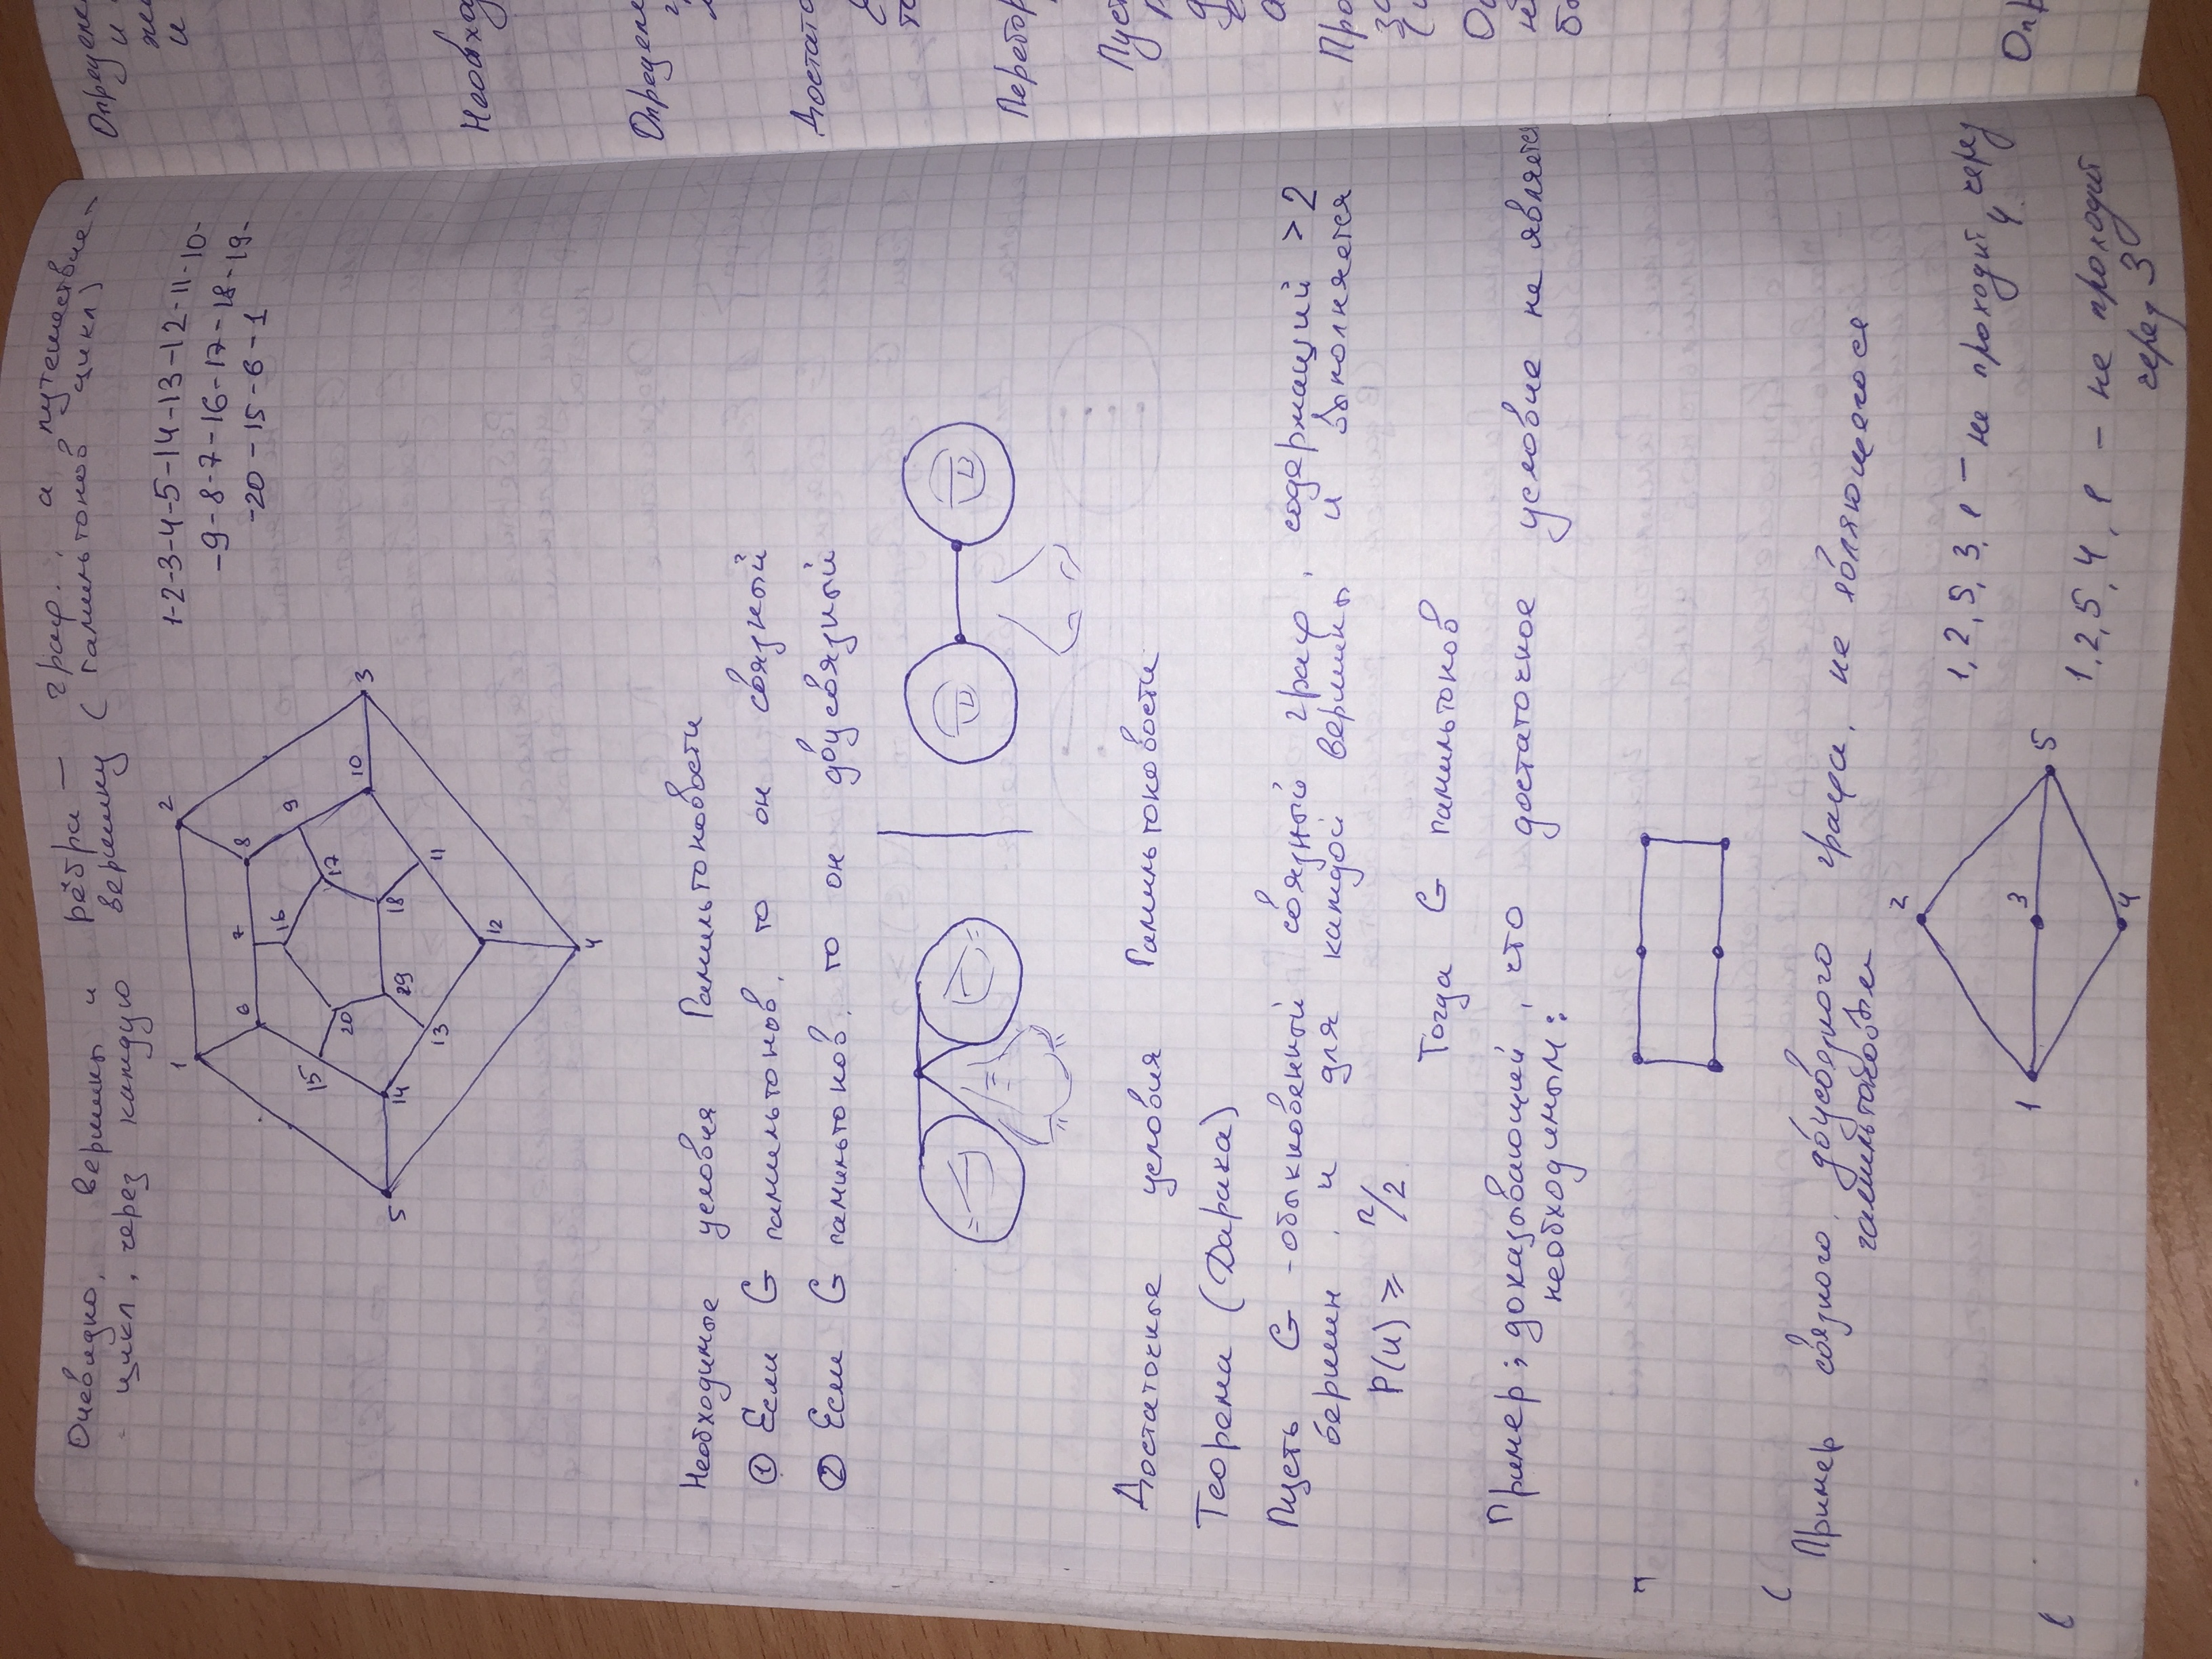 Очевидно, вершины и рёбра — граф., а путешествие –
цикл, через каждую вершину (гамильтонов цикл)
1-2-3-4-5-14-13-12-11-10-
-9-8-7-16-17-18-19-
-20-15-6-1
1
2
6
7
8
16
9
15
17
20
10
3
5
14
29
18
13
11
12
4
Необходимые условия Гамильтоновости
① Если G гамильтонов, то он связный
② Если G гамильтонов, то он двусвязный
Достаточные условия Гамильтоновости
Теорема (Дарака)
Пусть G - обыкновенный связный граф, содержащий > 2
вершин, и для каждой вершины u выполняется
P(u) ≥ n/2
Тогда G гамильтонов
Пример; доказывающий, что достаточное условие не является
необходимым:
Пример связного, двусвязного графа, не являющегося
гамильтоновым
2
1
3
5
4
1, 2, 5, 3, 1 – не проходит через
4.
1.2,5,4,1 – не проходит
через 3
Необход
Перебор